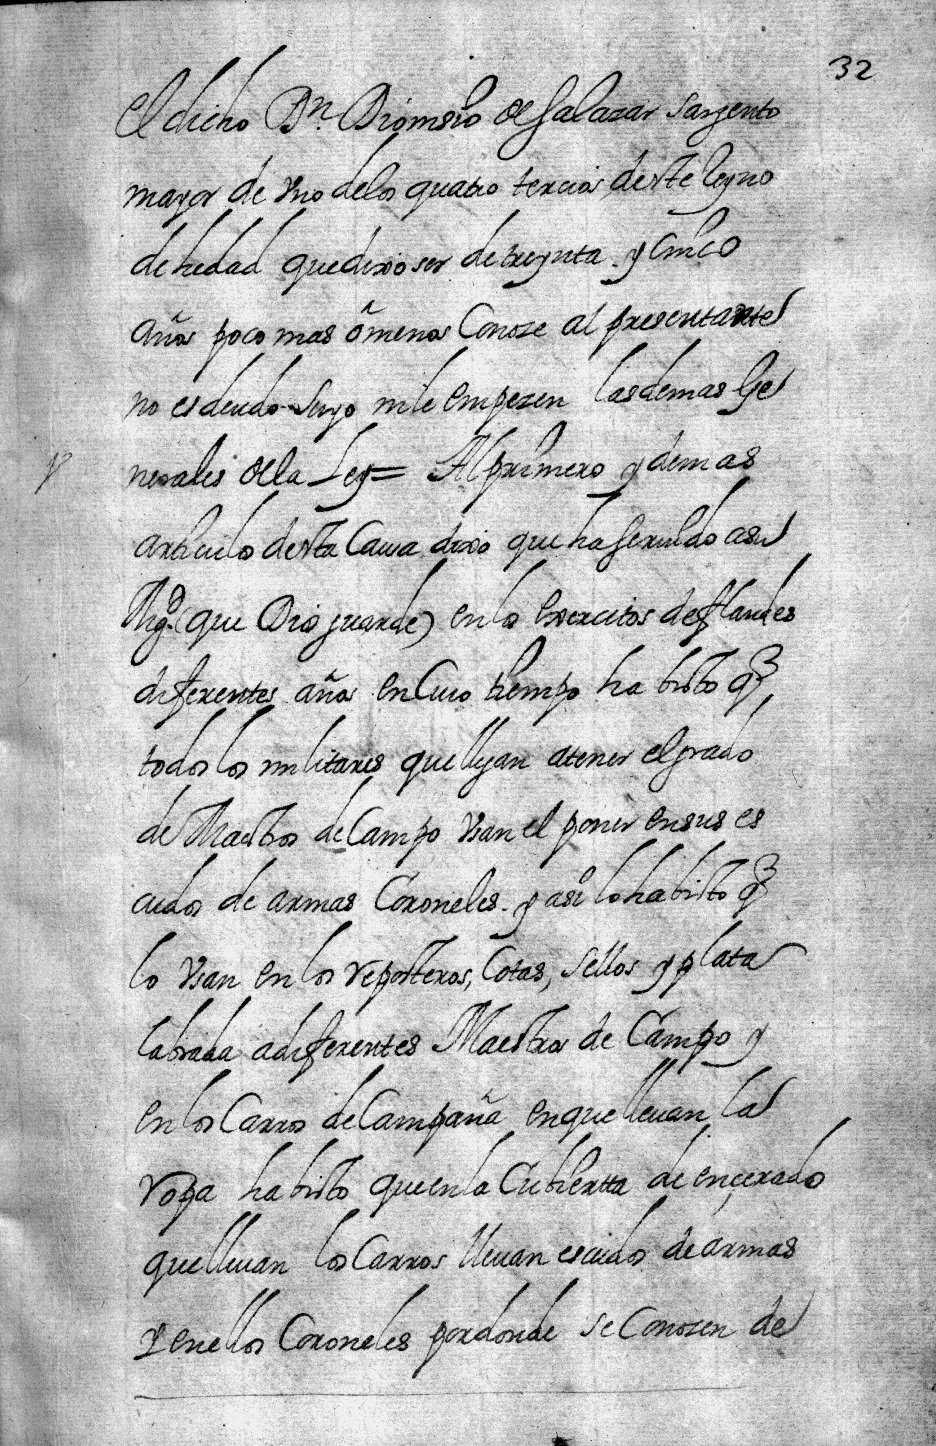 32
El dicho Dn. Dionisio de Salazar Sargento
mayor de Vno delos quatro tercios deste Reyno
de hedad que dixo ser de treynta y Cinco
años poco mas ô menos Conoze al presentante
no es deudo suyo ni le empezen las demas Ge
nerales de la Ley = Al primero y demas
articulo desta Causa dixo que ha seruido a su
Mgd. (que Dios guarde) en los exercitos de flandes
diferentes años en Cuio tiempo ha bisto q
todos los militares que llegan a tener el grado
de Maestros de Campo Vsan el poner en sus es
cudos de armas Coroneles. y asi lo ha bisto q
lo Vsan en los reposteros, Cotas, Sellos y plata
labrada a diferentes Maestros de Campo y
en los Carros de Campaña en que lleuan la
ropa ha bisto que en la Cubiertta de ençerado
que lleuan los Carros lleuan escudos de armas
Y en ellos Coroneles por donde se Conozen de